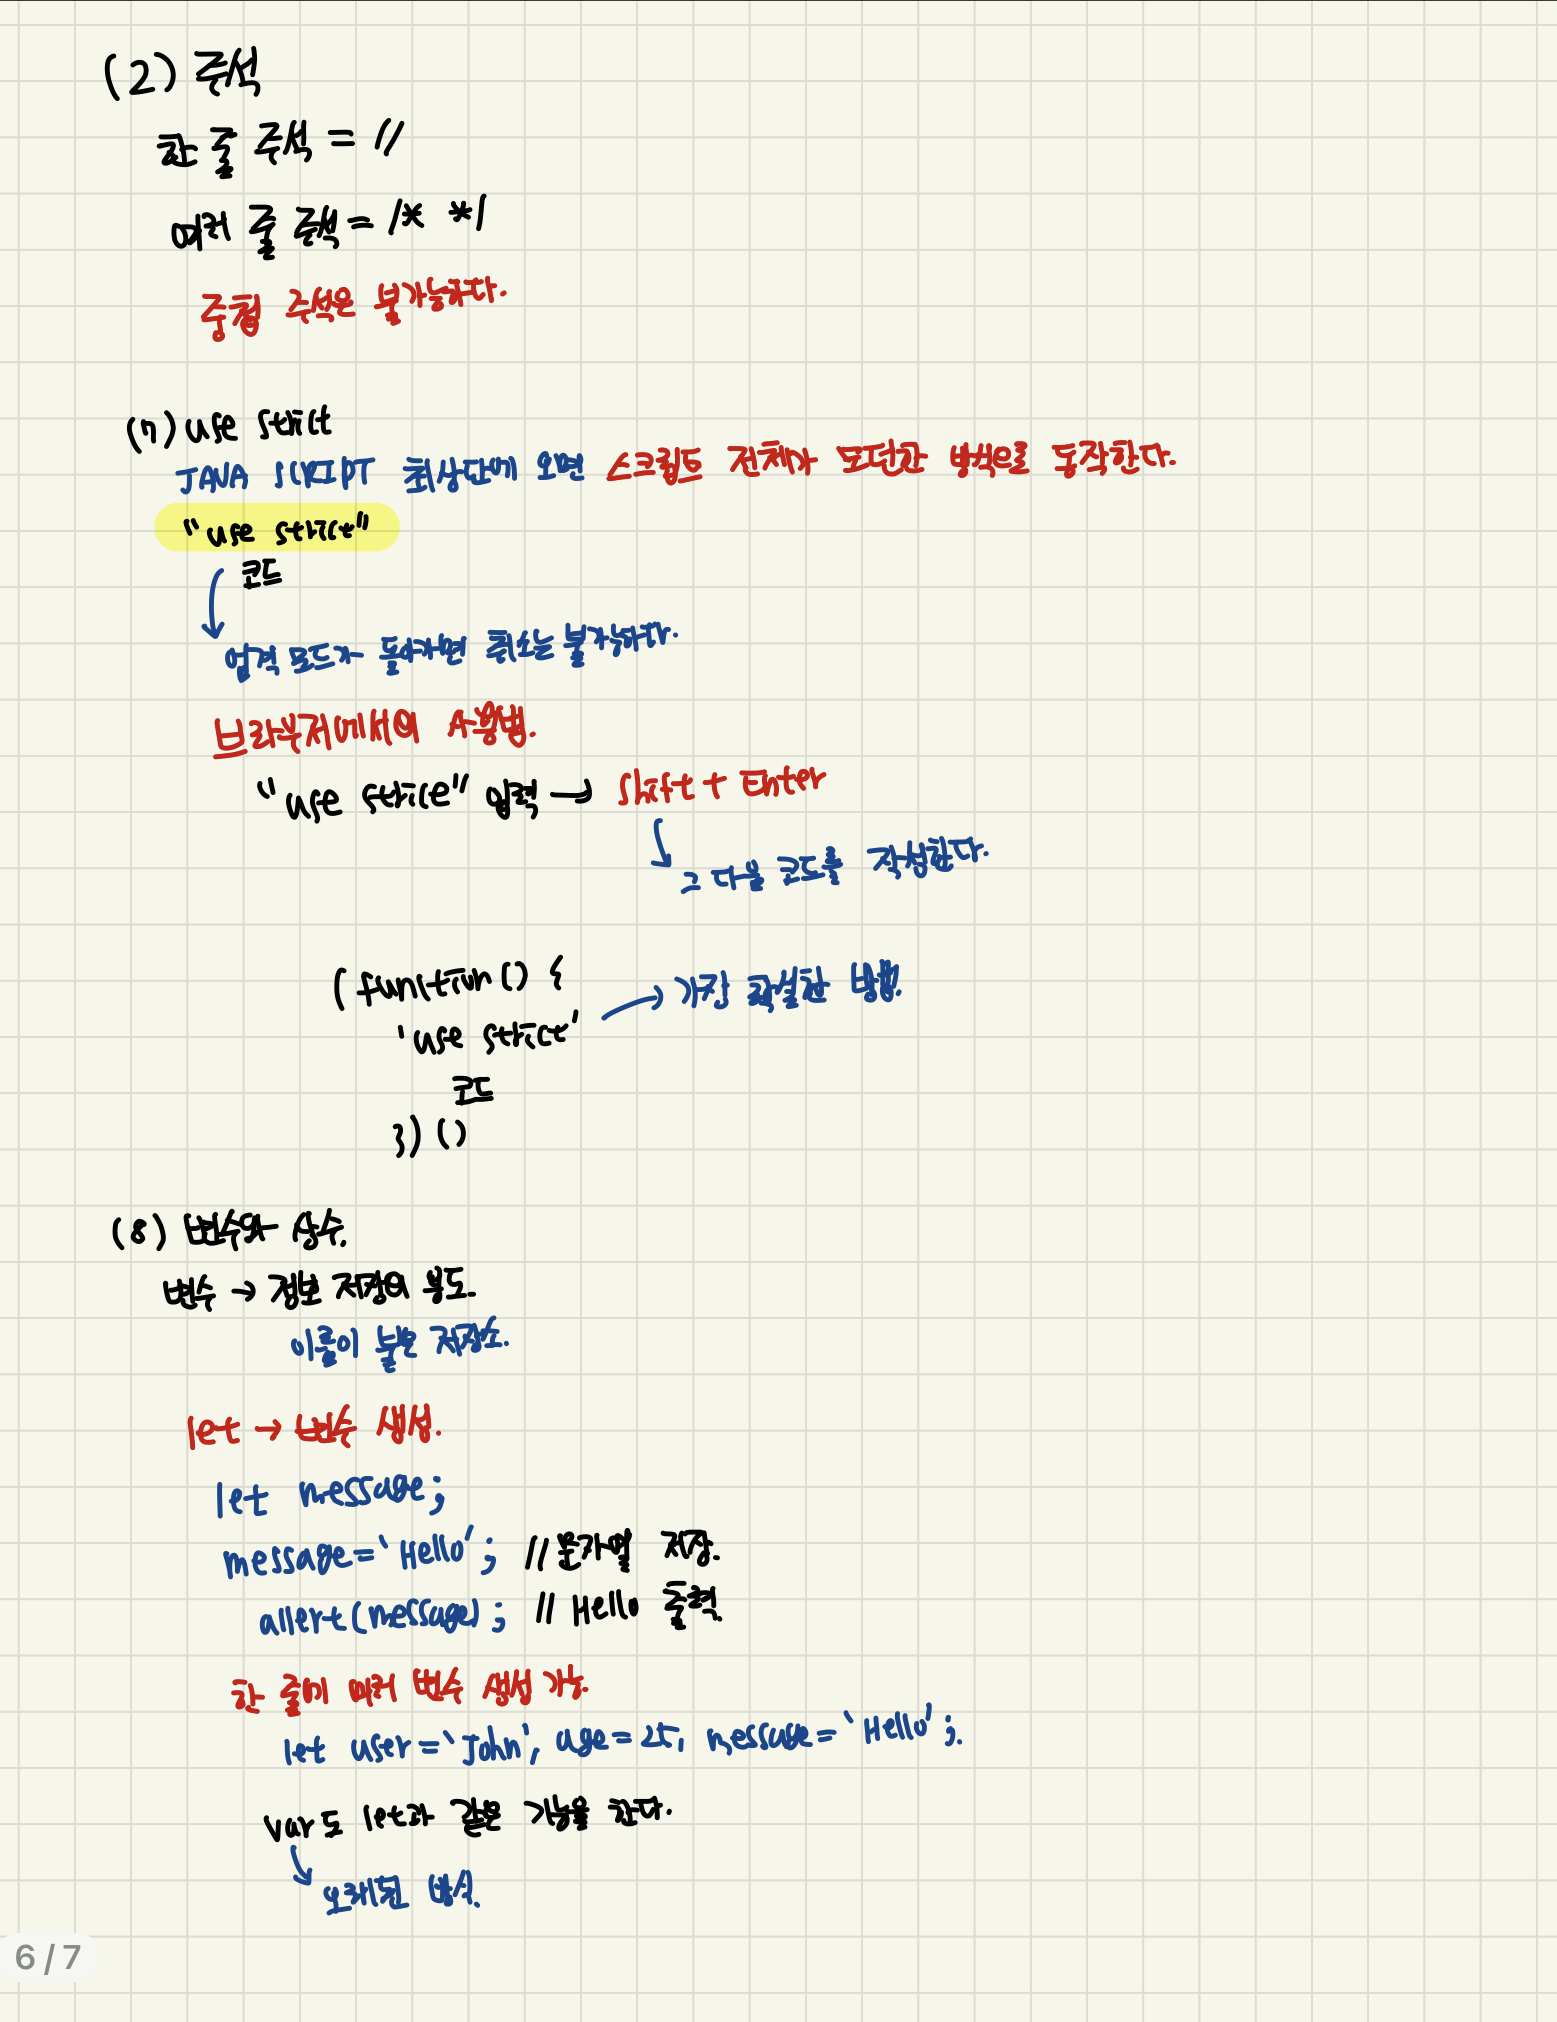 (2) 주석
한 줄 주석 = //
여러 줄 주석 = /* */
중첩 주석은 불가능하다.
(7) use strict
JAVA SCRIPT 최상단에 오면 스크립트 전체가 모던한 방식으로 동작한다.
"use strict"
코드
엄격 모드가 돌아가면 취소는 불가능하다.
브라우저에서의 사용법.
"use strict" 입력 → Shift + Enter
그 다음 코드를 작성한다.
(function() {
'use strict' → 가장 확실한 방법.
코드
}) ()
(8) 변수와 상수.
변수 → 정보 저장의 용도.
이름이 붙은 저장소.
let → 변수 생성.
let message;
message = 'Hello'; // 문자열 저장.
allert(message); // Hello 출력.
한 줄에 여러 변수 생성 가능.
let user = 'John', age = 25, message = 'Hello';
var도 let과 같은 기능을 한다.
오래된 방식.
6/7